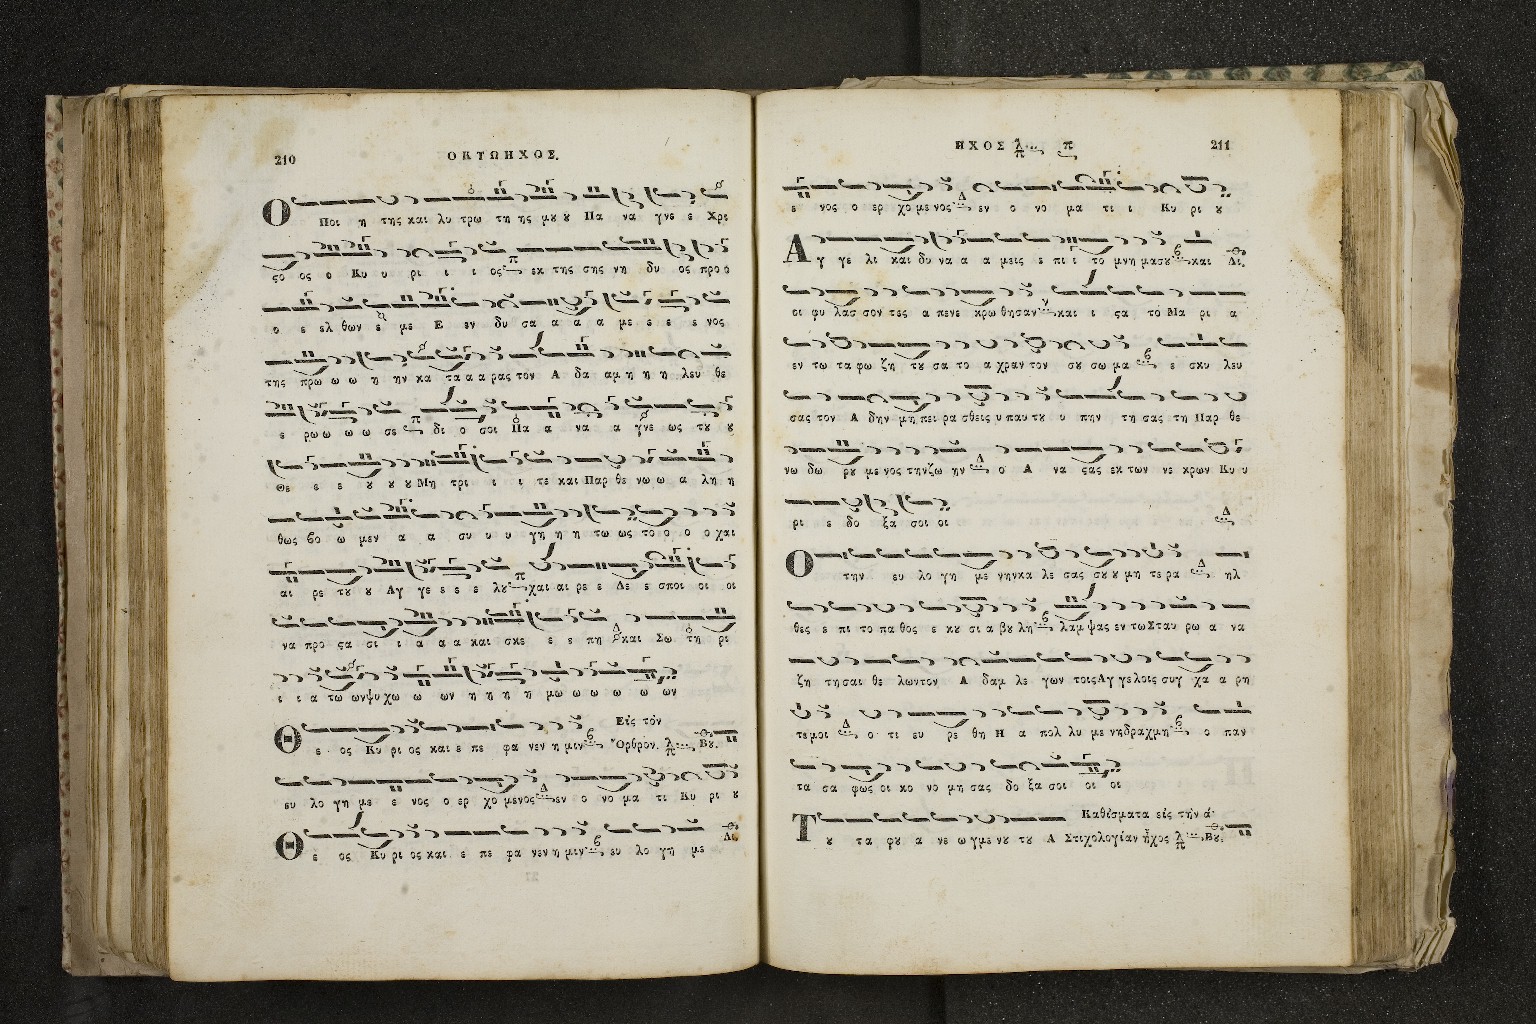 210
ΟΚΤΩΗΧΟΣ.
Ο Ποι η της και λυ τρω τη ης μου ου Πα να γνε ε Χρι
ςο ος ο Κυ υ ρι ι ι ος εκ της σης νη δυ ος προ ο
ο ε ελ θων ε με Ε εν δυ σα α α α με ε ε ε νος
της πρω ω ω η ην κα τα α α ρας τον Α δα αμ η η η λευ θε
ε ρω ω ω ω σε δι ο σοι Πα α να α γνε ως τȣ ȣ
Θε ε ε ȣ ȣ ȣ Μη τρι ι ι τε και Παρ θε νω ω α λη η
θως βο ω μεν α α συ υ υ γη η η τω ως το ο ο ο χαι
αι ρε τȣ ȣ Αγ γε ε ε ε λȣ χαι αι ρε ε Δε ε σποι οι οι
να προ ςα σι ι α α α και σκε ε ε πη και Σω τη ρι
ι ι α τω ων ψυ χω ω ων η η η η μω ω ω ω ω ων
Θ ε ος Κυ ρι ος και ε πε φα νεν η μιν
Εἰς τὸν
Ὄρθρον. Βȣ.
ευ λο γη με ε νος ο ερ χο μενος εν ο νο μα τι Κυ ρι ȣ
Θ ε ος Κυ ρι ος και ε πε φα νεν η μιν ευ λο γη με
Δι.
ΗΧΟΣ
211
ε νος ο ερ χο με νος εν ο νο μα τι ι Κυ ρι ȣ
Α γ γε λι και δυ να α α μεις ε πι ι το μνη μα σȣ και
Δι.
οι φυ λασ σον τες α πενε κρω θησαν και ι ςα το Μα ρι α
εν τω τα φω ζη τȣ σα το α χραν τον σȣ σω μα ε σκυ λευ
σας τον Α δην μη πει ρα σθεις υ παυ τȣ υ πην τη σας τη Παρ θε
νω δω ρȣ με νος την ζω ην ο Α να ςας εκ των νε κρων Κυ υ
ρι ε δο ξα σοι οι
Ο την ευ λο γη με νην κα λε σας σȣ ȣ μη τε ρα ηλ
θες ε πι το πα θος ε κȣ σι α βȣ λη λαμ ψας εν τω Σταυ ρω α να
ζη τη σαι θε λων τον Α δαμ λε γων τοις Αγ γε λοις συγ χα α ρη
τε μοι ο τι ευ ρε θη Η α πολ λυ με νη δραχμη ο παν
τα σα φως οι κο νο μη σας δο ξα σοι οι οι
Τ ȣ τα φȣ α νε ωγ με νȣ τȣ Α
Καθίσματα εἰς τὴν ά
Στιχολογίαν ἦχος Βȣ.